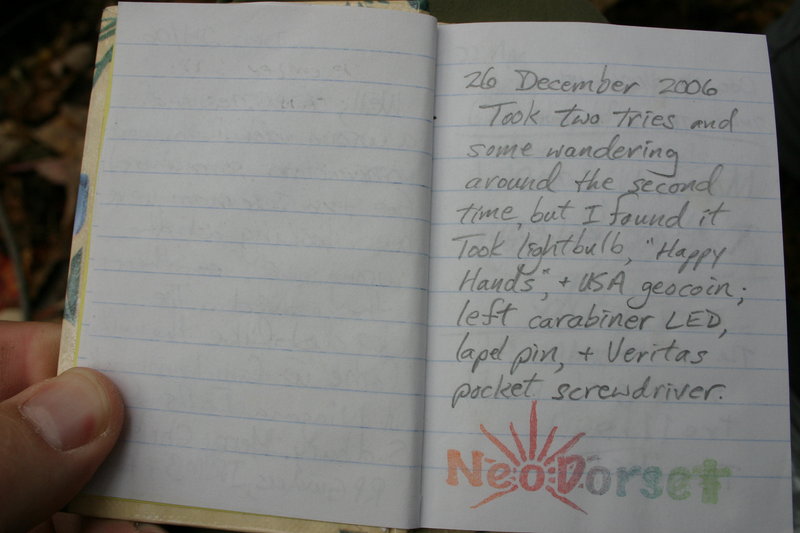 26 December 2006
Took two tries and
some wandering
around the second
time, but I found it
Took lightbulb, "Happy
Hands", + USA geocoin;
left carabiner LED,
lapel pin, + Veritas
pocket screwdriver.
NeoDorset